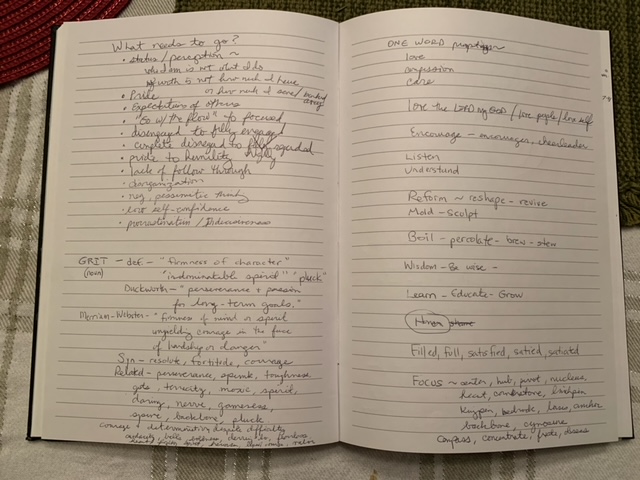 What needs to go?
• status / perception ~
wisdom is not what I do
worth is not how much I have
• Pride or how much I save / banked away
• Expectations of others
• "Go w/ the flow" to focused
• disengaged to fully engaged
• complete disregard to fully regarded
• pride to humility
• lack of follow through
• disorganization
• neg, pessimistic
• low self-confidence
• procrastination /
GRIT - def. - "firmness of character"
(noun) "indominable spirit" "pluck"
Duckworth - "perseverance + passion
for long-term goals."
Merriam-Webster - "firmness of mind or spirit
unyielding courage in the face
of hardship or danger"
Syn - resolute, fortitude, courage
Related - perseverance, spunk, toughness
guts, tenacity, moxie, spirit,
daring, nerve, gameness,
spine, backbone, pluck
courage + determination despite difficulty
ONE WORD
love
compassion
care
Love the LORD my GOD / love people / love self
Encourage - encourages, cheerleader
Listen
Understand
Reform ~ reshape - revive
Mold - sculpt
Boil - percolate - brew - stew
Wisdom - Be wise -
Learn - Educate - Grow
Honor
Filled, full, satisfied, satied, satiated
Focus ~ center, hub, pivot, nucleus,
heart, cornerstone, linchpin
Keypin, bedrock, basis, anchor
backbone, cynosure
Compass, concentrate,